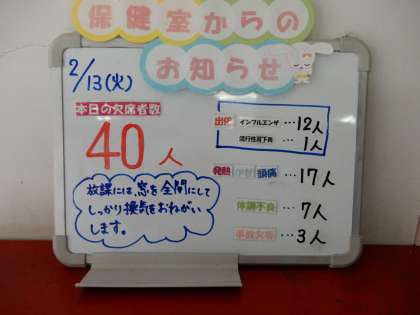 保健室からの
お知らせ
2/13(火)
本日の欠席者数
40人
出停 インフルエンザ …12人
流行性耳下炎 …1人
発熱 かぜ 頭痛 …17人
体調不良 …7人
事故欠等 …3人
放課には窓を全開にして
しっかり換気をおねがい
します。